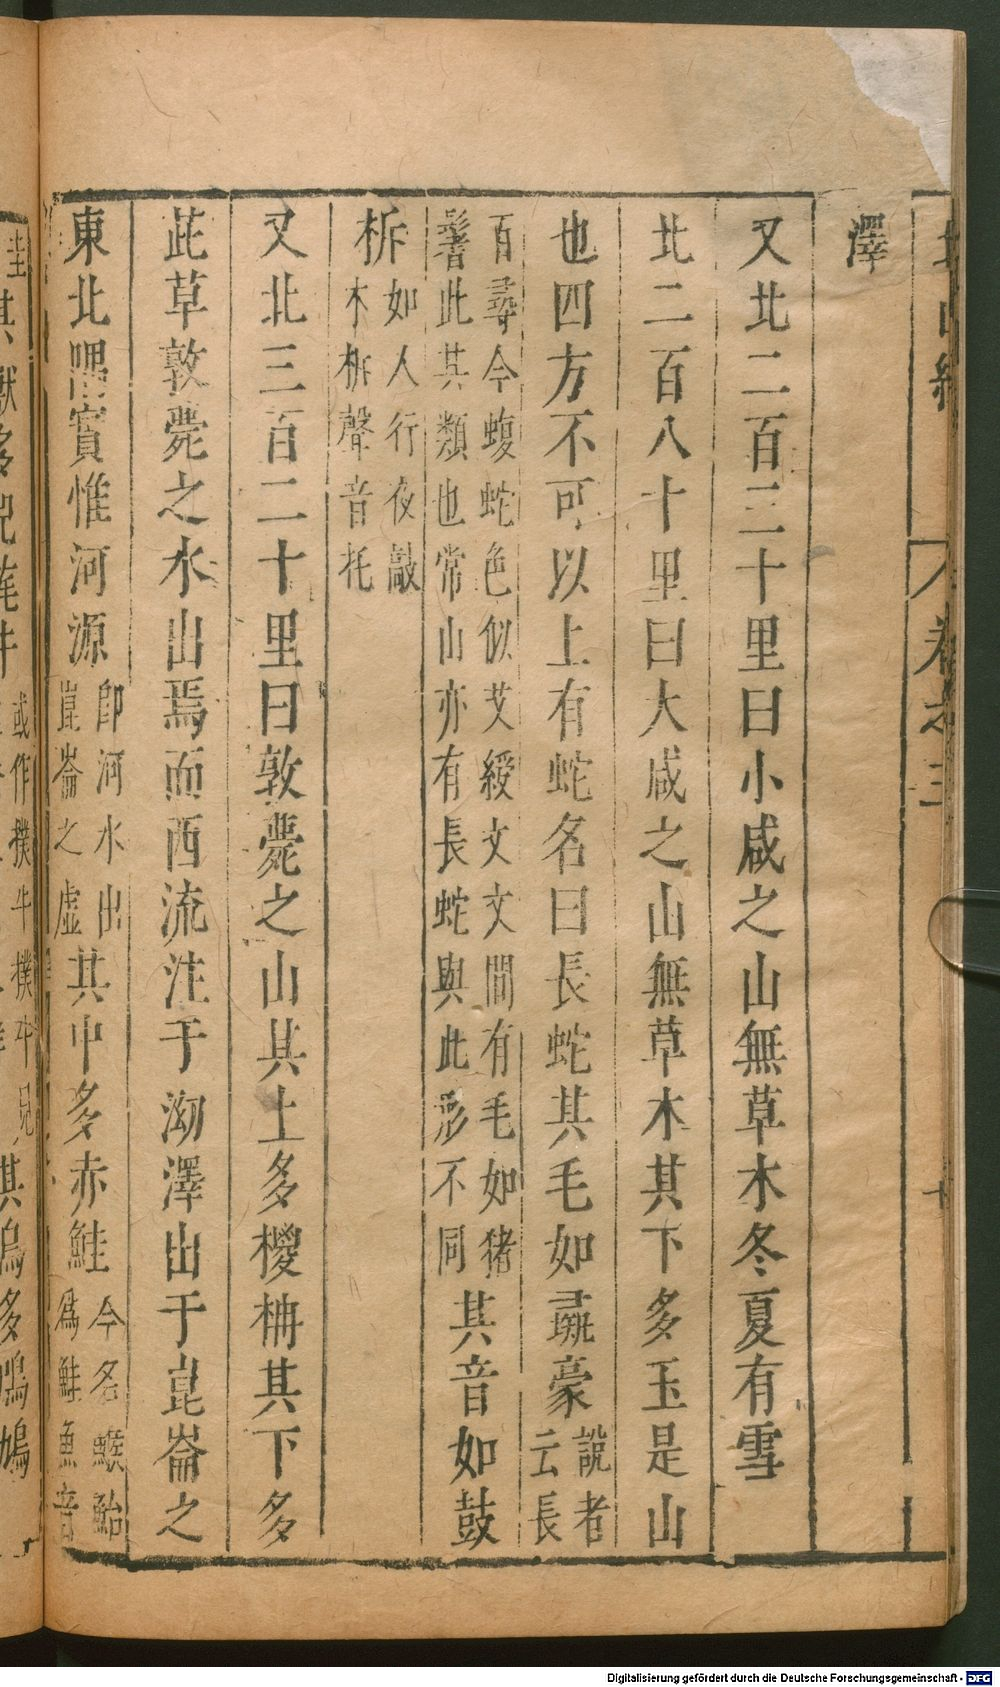 北山經 卷之三 十
澤
又北二百三十里曰小咸之山無草木冬夏有雪
北二百八十里曰大咸之山無草木其下多玉是山
也四方不可以上有蛇名曰長蛇其毛如彘豪說者云長
百尋今蝮蛇色似艾綬文文間有毛如猪鬐此其類也常山亦有長蛇與此形不同其音如鼓
柝如人行夜敲木柝聲音托
又北三百二十里曰敦薨之山其上多椶枏其下多
茈草敦薨之水山焉而西流注于泑澤出于崑崙之
東北隅實惟河源卽河水出崑崙之虛其中多赤鮭今名鯸鮐為鮭魚音
圭其獸多兕旄牛或作撲牛撲牛見其鳥多鳲鳩
Digitalisierung gefördert durch die Deutsche Forschungsgemeinschaft - DFG